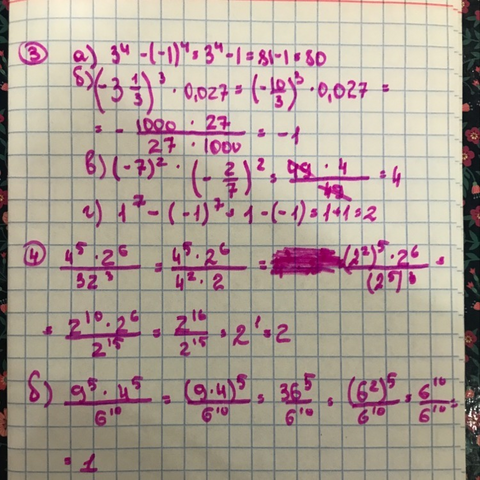 ③ а) 3⁴ - (-1)⁴ = 3⁴ - 1 = 81 - 1 = 80
б) (-3 1/3)³ · 0,027 = (-10/3)³ · 0,027 =
= - (1000 · 27)/(27 · 1000) = -1
в) (-7)² · (-2/7)² = (49 · 4)/49 = 4
г) 1⁷ - (-1)⁷ = 1 - (-1) = 1+1 = 2
④ (4⁵ · 2⁶)/32³ = (4⁵ · 2⁶)/(4² · 2) = ((2²)⁵ · 2⁶)/(2⁵)³ =
= (2¹⁰ · 2⁶)/2¹⁵ = 2¹⁶/2¹⁵ = 2¹ = 2
б) (9⁵ · 4⁵)/6¹⁰ = (9 · 4)⁵/6¹⁰ = 36⁵/6¹⁰ = (6²)⁵/6¹⁰ = 6¹⁰/6¹⁰ =
= 1